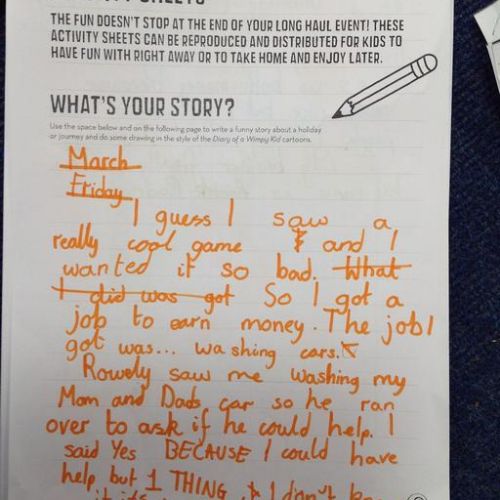 THE FUN DOESN'T STOP AT THE END OF YOUR LONG HAUL EVENT! THESE
ACTIVITY SHEETS CAN BE REPRODUCED AND DISTRIBUTED FOR KIDS TO
HAVE FUN WITH RIGHT AWAY OR TO TAKE HOME AND ENJOY LATER.
WHAT'S YOUR STORY?
Use the space below and on the following page to write a funny story about a holiday
or journey and do some drawing in the style of the Diary of a Wimpy Kid cartoons.
March
Friday
I guess I saw a
really cool game and I
wanted it so bad. What
I did was got So I got a
job to earn money. The job I
got was... washing cars.
Rowely saw me washing my
Mom and Dads car so he ran
over to ask if he could help. I
said Yes BECAUSE I could have
help but 1 THING I don't